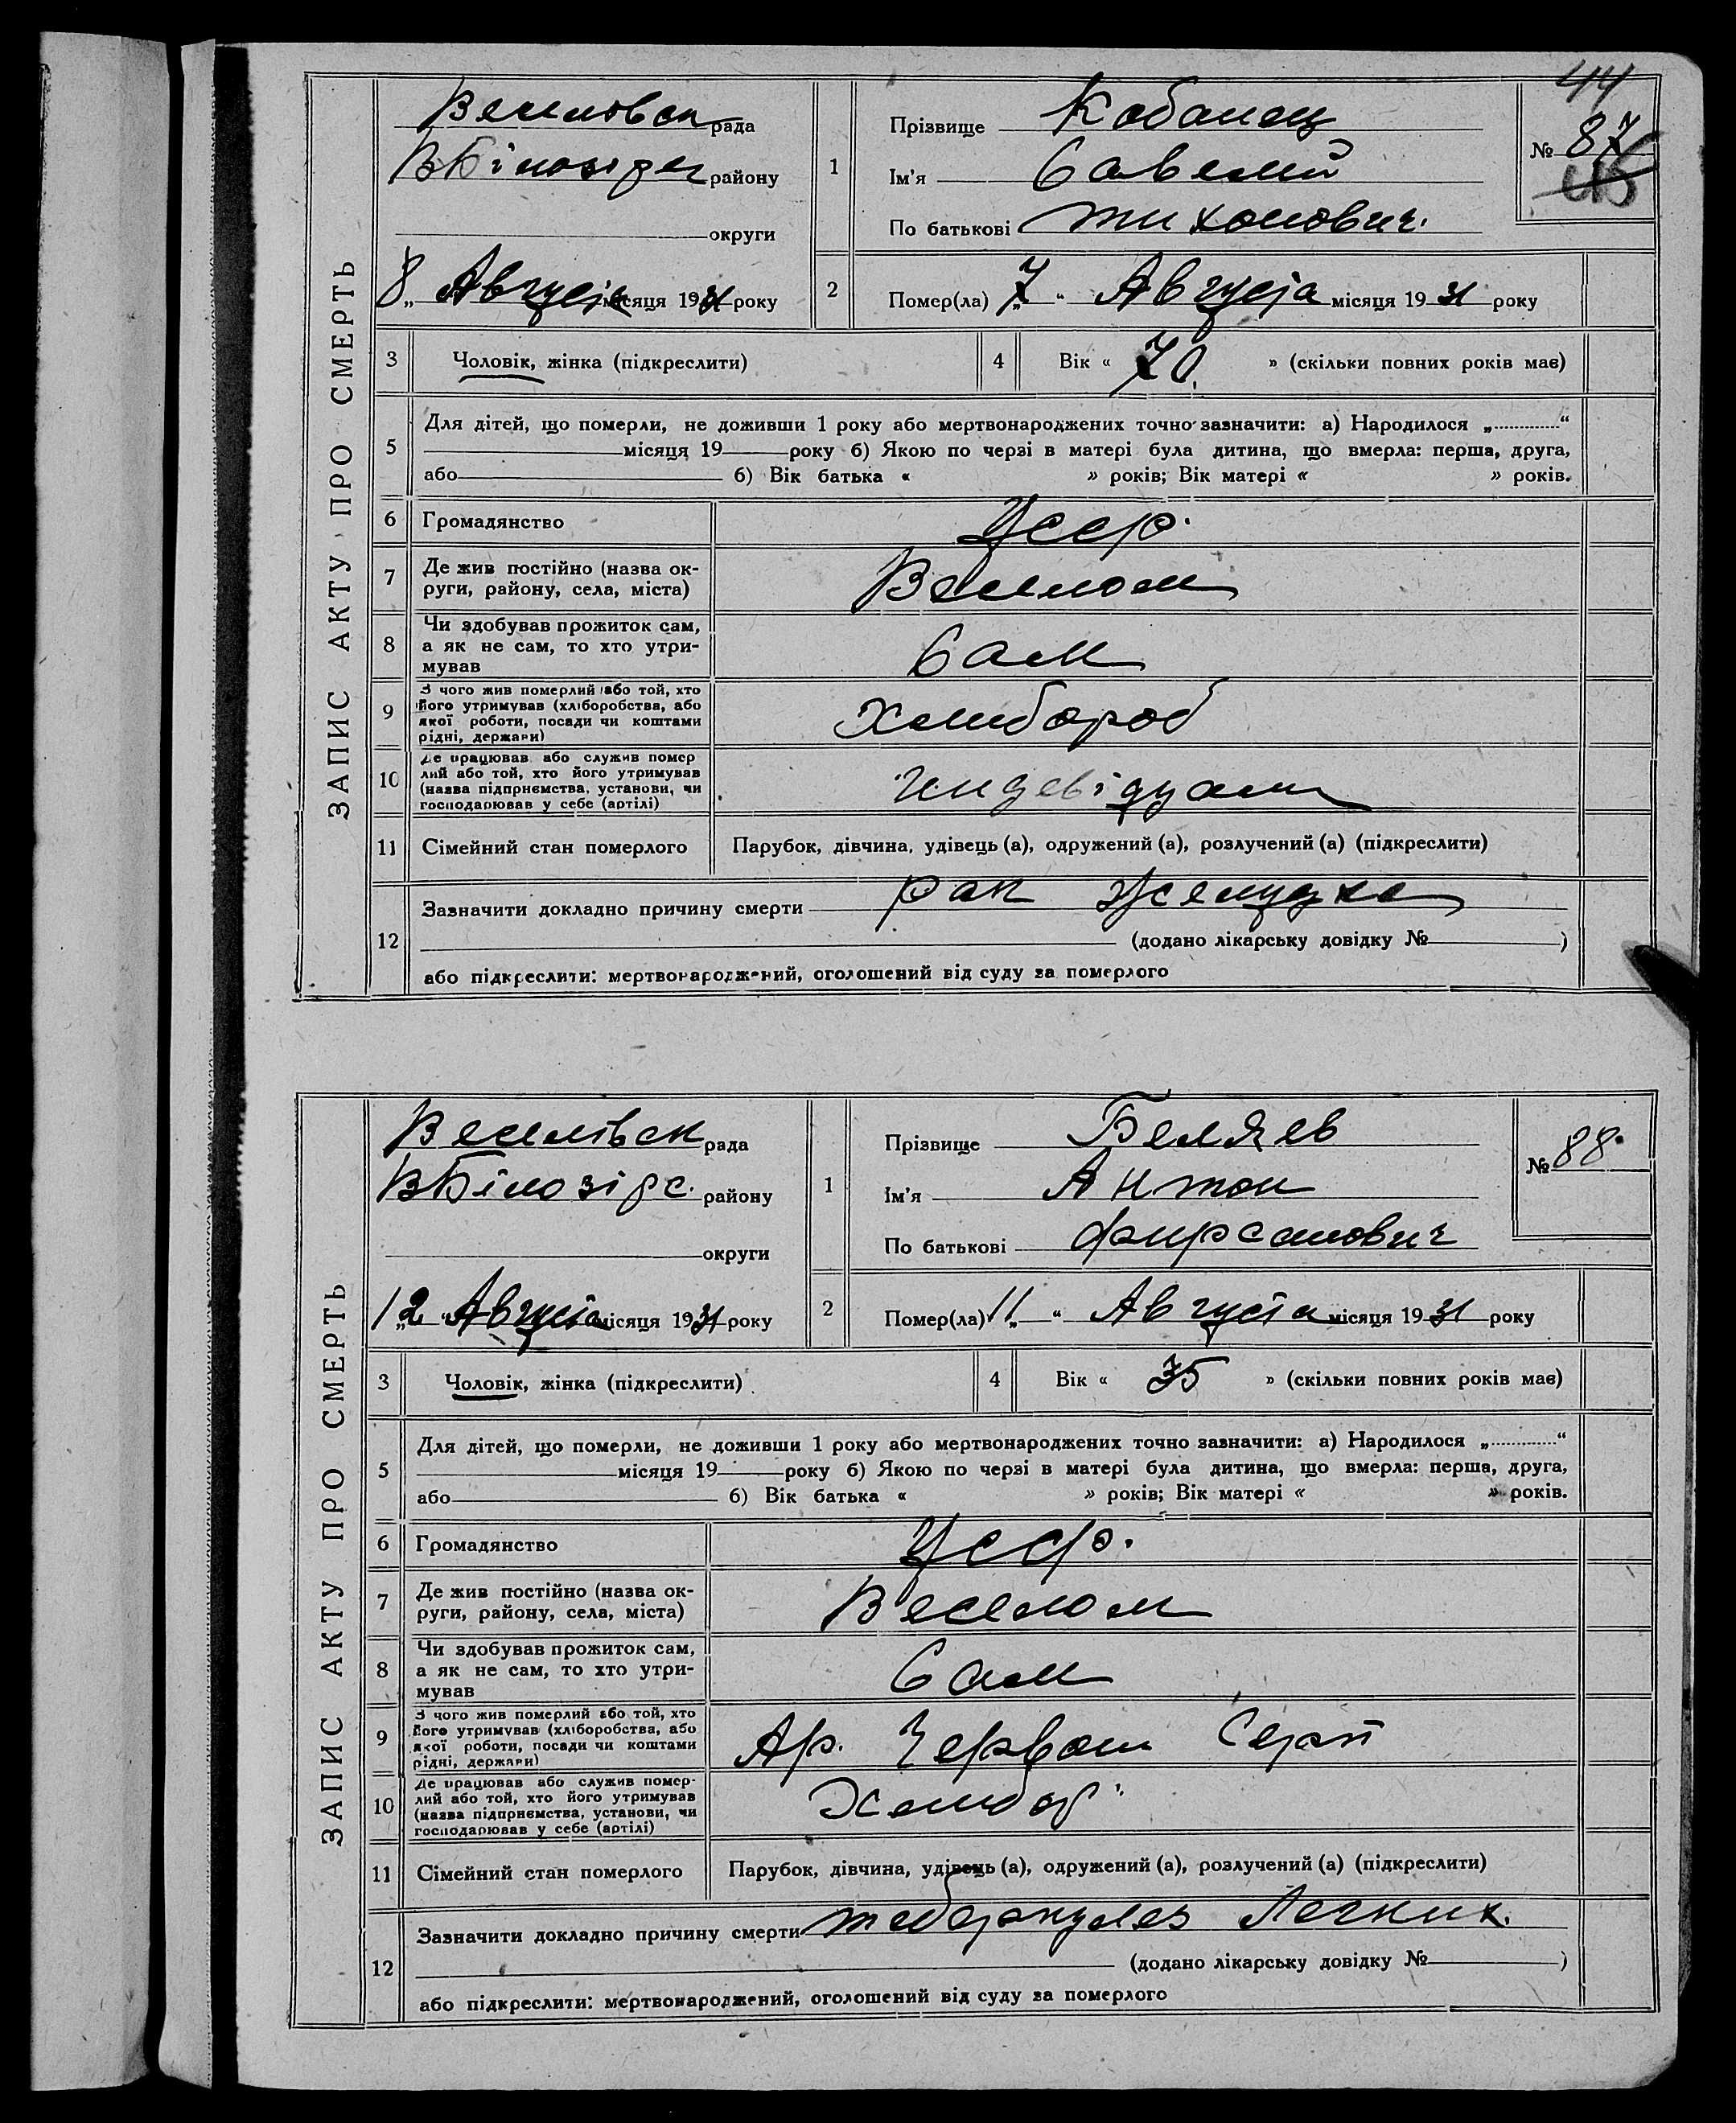 44
ЗАПИС АКТУ ПРО СМЕРТЬ
Веселовск рада
ВБілозірск району
округи
8 „ Августа місяця 1931 року
1
Прізвище Кобанец
Ім'я Савелий
По батькові Тихонович.
№ 87
45
2
Помер(ла) „7“ Августа місяця 1931 року
3 Чоловік, жінка (підкреслити)
4 Вік « 70. » (скільки повних років має)
5 Для дітей, що померли, не доживши 1 року або мертвонароджених точно зазначити: а) Народилося „............“
місяця 19 року б) Якою по черзі в матері була дитина, що вмерла: перша, друга,
або б) Вік батька « » років; Вік матері « » років.
6 Громадянство Усср.
7 Де жив постійно (назва ок-
руги, району, села, міста) Веселом
8 Чи здобував прожиток сам,
а як не сам, то хто утри-
мував Сам
9 З чого жив померлий або той, хто
його утримував (хліборобства, або
якої роботи, посади чи коштами
рідні, держави) Хлибороб
10 Де працював або служив помер
лий або той, хто його утримував
(назва підприємства, установи, чи
господарював у себе (артілі) Индевідуал
11 Сімейний стан померлого Парубок, дівчина, удівець (а), одружений (а), розлучений (а) (підкреслити)
12 Зазначити докладно причину смерти рак желудка
(додано лікарську довідку № )
або підкреслити: мертвонароджений, оголошений від суду за померлого
ЗАПИС АКТУ ПРО СМЕРТЬ
Веселівск рада
ВБілозірс. району
округи
12 „ Августа місяця 1931 року
1
Прізвище Беляев
Ім'я Антон
По батькові Фирсанович
№ 88.
2
Помер(ла) „11“ Августа місяця 1931 року
3 Чоловік, жінка (підкреслити)
4 Вік « 35 » (скільки повних років має)
5 Для дітей, що померли, не доживши 1 року або мертвонароджених точно зазначити: а) Народилося „............“
місяця 19 року б) Якою по черзі в матері була дитина, що вмерла: перша, друга,
або б) Вік батька « » років; Вік матері « » років.
6 Громадянство Усср.
7 Де жив постійно (назва ок-
руги, району, села, міста) Веселом
8 Чи здобував прожиток сам,
а як не сам, то хто утри-
мував Сам
9 З чого жив померлий або той, хто
його утримував (хліборобства, або
якої роботи, посади чи коштами
рідні, держави) Ар. Червони Серп
10 Де працював або служив помер-
лий або той, хто його утримував
(назва підприємства, установи, чи
господарював у себе (артілі) Хлибор
11 Сімейний стан померлого Парубок, дівчина, удівець (а), одружений (а), розлучений (а) (підкреслити)
12 Зазначити докладно причину смерти тюберкулез Легких.
(додано лікарську довідку № )
або підкреслити: мертвонароджений, оголошений від суду за померлого